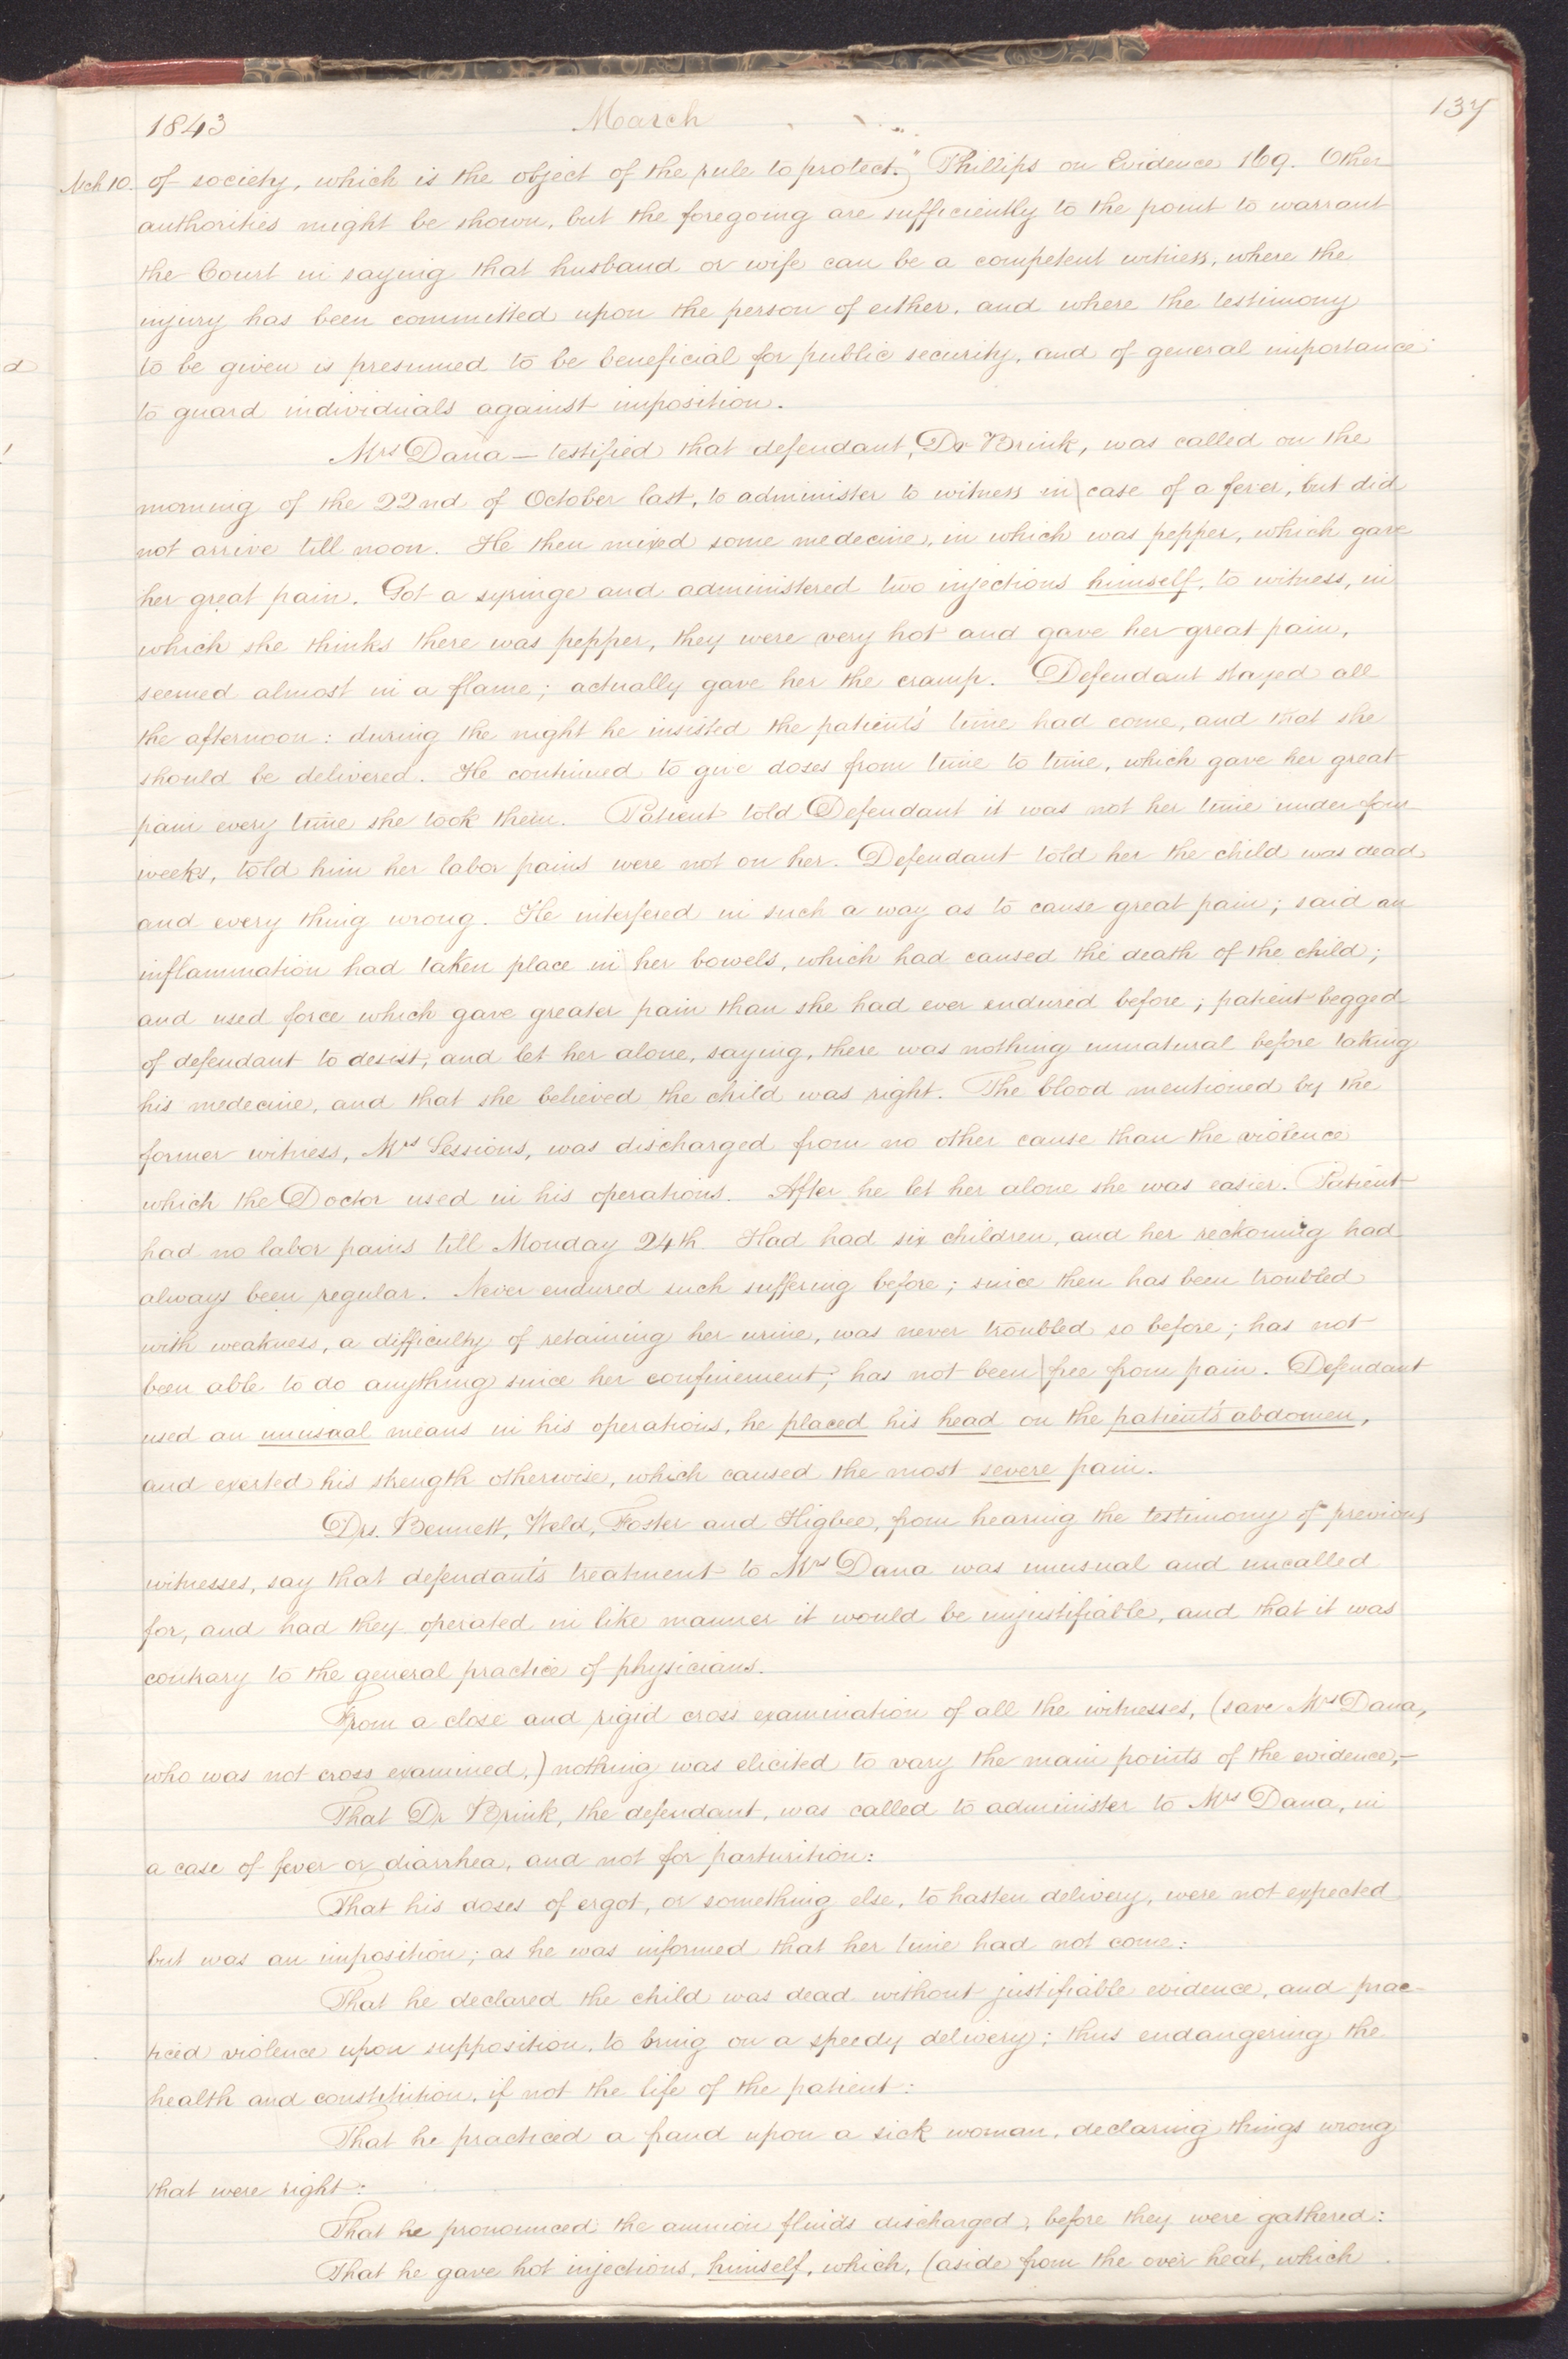 1843 March 137
Mch 10. of society, which is the object of the rule to protect." Phillips on Evidence 169. Other
authorities might be shown, but the foregoing are sufficiently to the point to warrant
the Court in saying that husband or wife can be a competent witness, where the
injury has been committed upon the person of either, and where the testimony
to be given is presumed to be beneficial for public security, and of general importance
to guard individuals against imposition.
Mrs Dana — testified that defendant, Dr Brink, was called on the
morning of the 22nd of October last, to administer to witness in case of a fever, but did
not arrive till noon. He then mixed some medecine, in which was pepper, which gave
her great pain. Got a syringe and administered two injections himself, to witness, in
which she thinks there was pepper, they were very hot and gave her great pain,
seemed almost in a flame; actually gave her the cramp. Defendant stayed all
the afternoon: during the night he insisted the patients' time had come, and that she
should be delivered. He continued to give doses from time to time, which gave her great
pain every time she took them. Patient told Defendant it was not her time under four
weeks, told him her labor pains were not on her. Defendant told her the child was dead
and every thing wrong. He interfered in such a way as to cause great pain; said an
inflammation had taken place in her bowels, which had caused the death of the child;
and used force which gave greater pain than she had ever endured before; patient begged
of defendant to desist, and let her alone, saying, there was nothing unnatural before taking
his medecine, and that she believed the child was right. The blood mentioned by the
former witness, Mrs Sessions, was discharged from no other cause than the violence
which the Doctor used in his operations. After he let her alone she was easier. Patient
had no labor pains till Monday 24th. Had had six children, and her reckoning had
always been regular. Never endured such suffering before; since then has been troubled
with weakness, a difficulty of retaining her urine, was never troubled so before; has not
been able to do anything since her confinement; has not been free from pain. Defendant
used an unusual means in his operations, he placed his head on the patient's abdomen,
and exerted his strength otherwise, which caused the most severe pain.
Drs. Bennett, Weld, Foster and Higbee, from hearing the testimony of previous
witnesses, say that defendant's treatment to Mrs Dana was unusual and uncalled
for, and had they operated in like manner it would be unjustifiable, and that it was
contrary to the general practice of physicians.
From a close and rigid cross examination of all the witnesses, (save Mrs Dana,
who was not cross examined,) nothing was elicited to vary the main points of the evidence,—
That Dr Brink, the defendant, was called to administer to Mrs Dana, in
a case of fever or diarrhea, and not for parturition:
That his doses of ergot, or something else, to hasten delivery, were not expected
but was an imposition; as he was informed that her time had not come:
That he declared the child was dead without justifiable evidence, and prac-
ticed violence upon supposition, to bring on a speedy delivery; thus endangering the
health and constitution, if not the life of the patient:
That he practiced a fraud upon a sick woman, declaring things wrong
that were right:
That he pronounced the amnion fluids discharged, before they were gathered:
That he gave hot injections, himself, which, (aside from the over heat, which